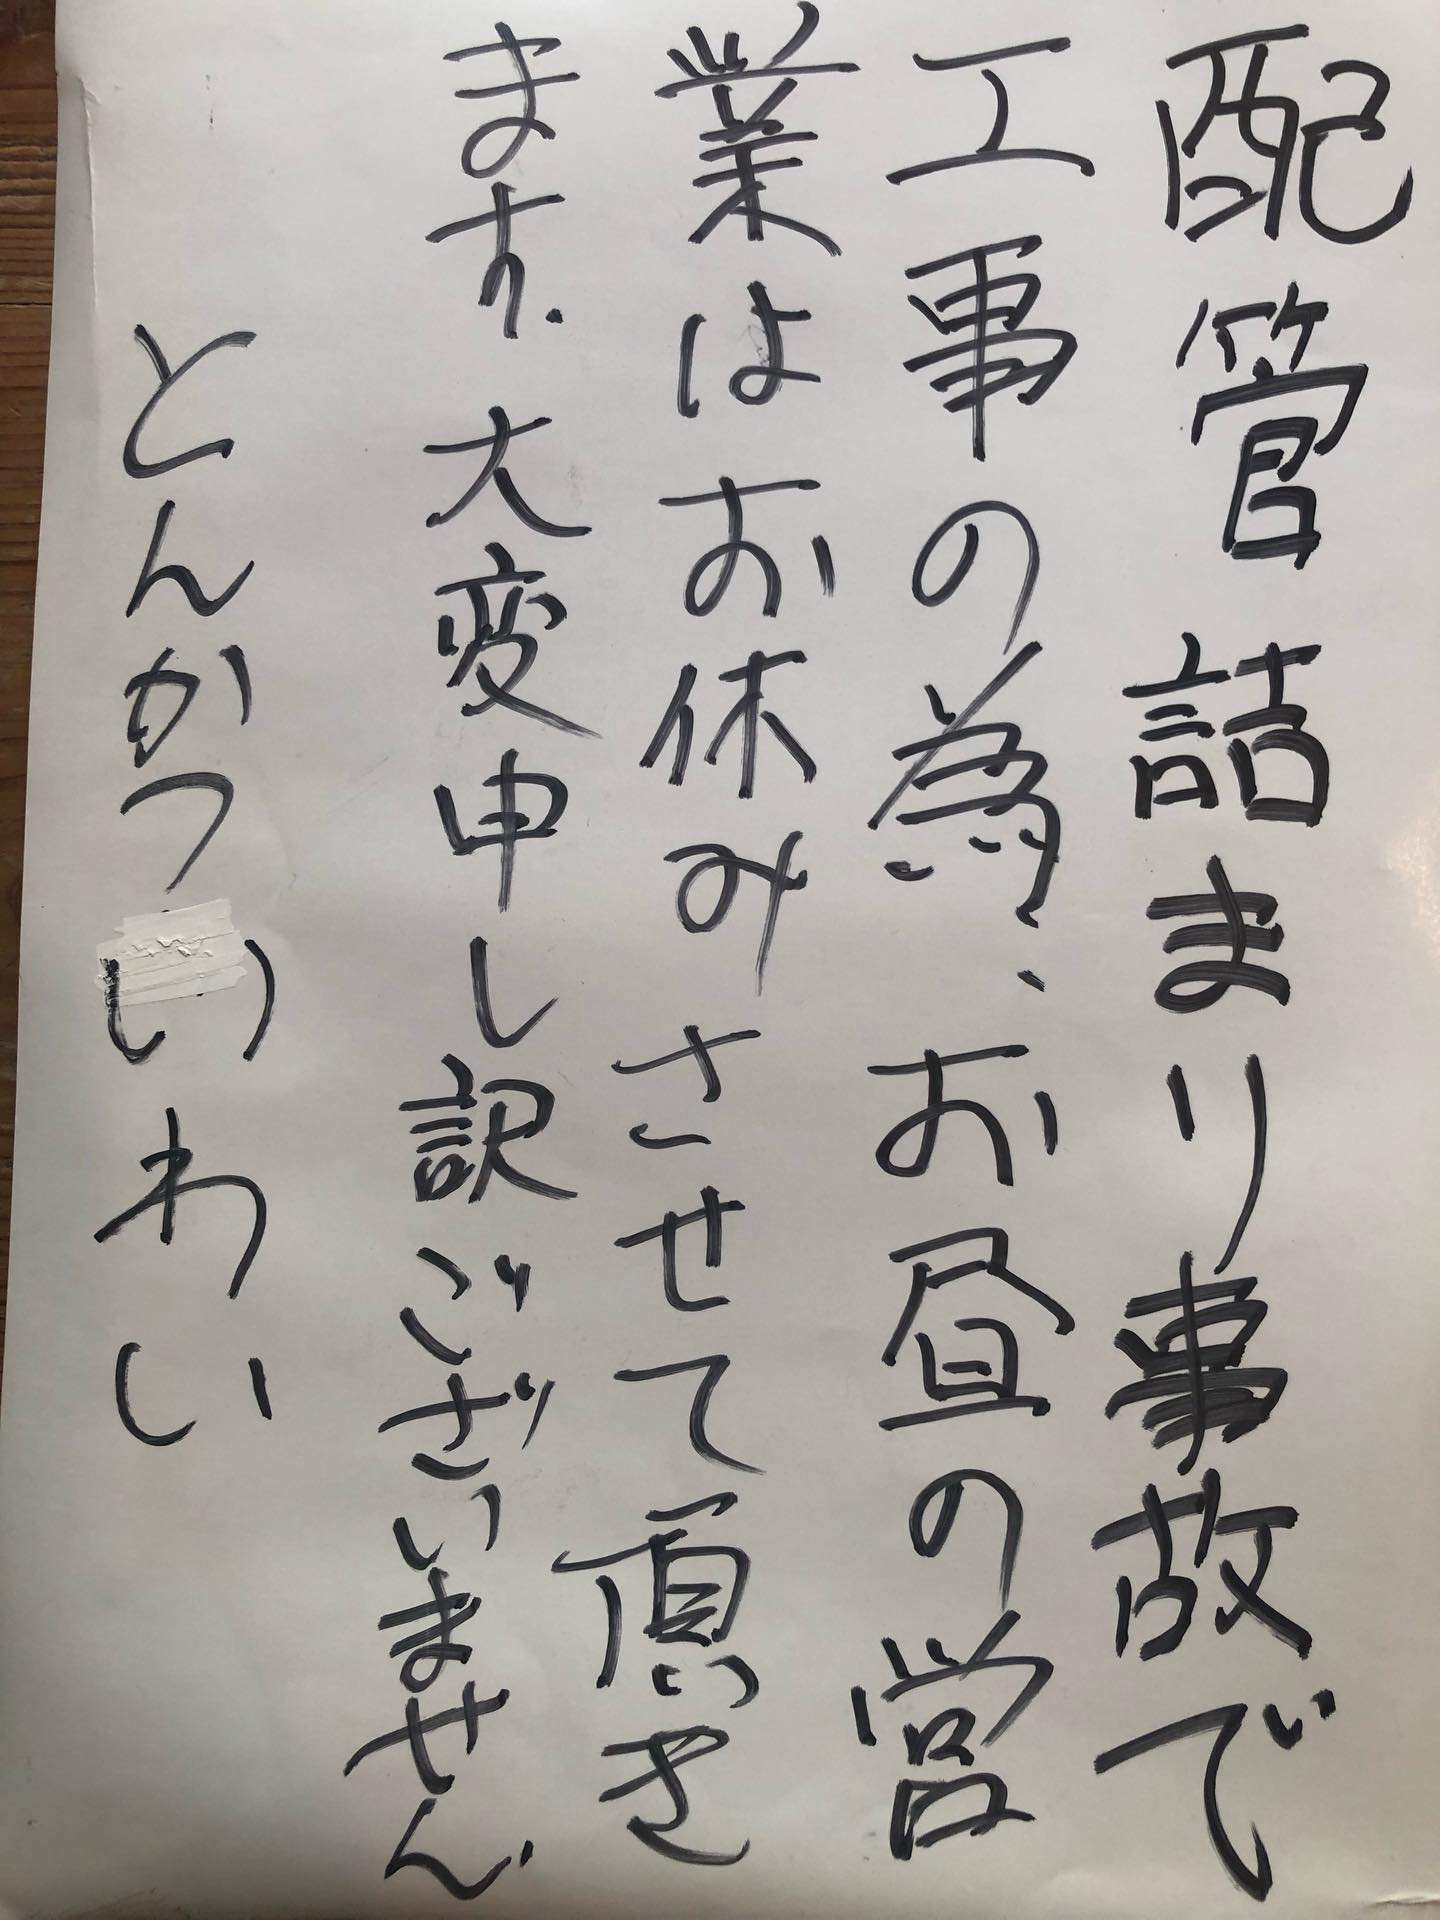 配管詰まり事故で
工事の為、お昼の営
業はお休みさせて頂き
ます.大変申し訳ございません.
とんかついわい